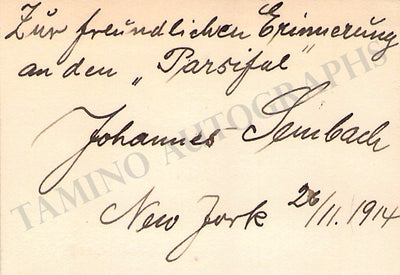 Zur freundlichen Erinnerung
an den „Parsifal"
Johannes Sembach
New York 26/11. 1914
TAMINO AUTOGRAPHS